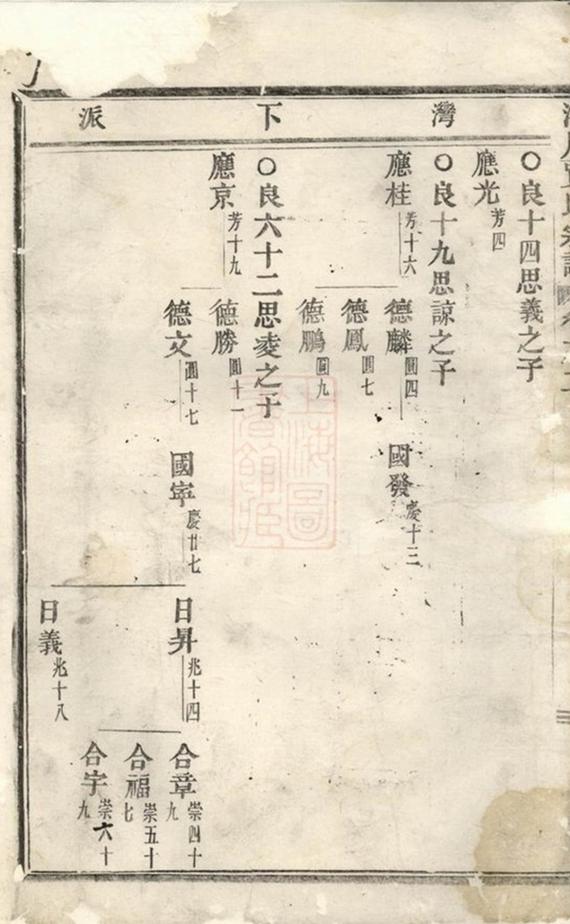 灣下派
○良十四思義之子
應光芳四
○良十九思諒之子
應桂芳十六
德麟圓四
國發慶十三
德鳳圓七
德鵬圓九
○良六十二思凌之子
應京芳十九
德勝圓十一
德文圓十七
國寧慶廿七
日昇兆十四
合章崇四十九
合福崇五十七
合宇崇六十九
日義兆十八